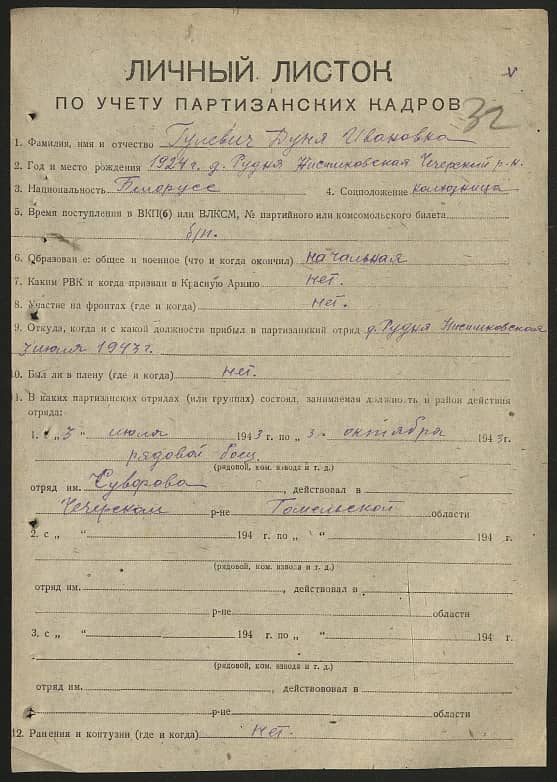 ЛИЧНЫЙ ЛИСТОК
ПО УЧЕТУ ПАРТИЗАНСКИХ КАДРОВ 32
1. Фамилия, имя и отчество Гулевич Дуня Ивановна
2. Год и место рождения 1924 г. д. Рудня Нисимковская Чечерский р-н.
3. Национальность Белорусс 4. Соцположение колхозница
5. Время поступления в ВКП(б) или ВЛКСМ, № партийного или комсомольского билета
б/п.
6. Образование: общее и военное (что и когда окончил) начальная
7. Каким РВК и когда призван в Красную Армию нет.
8. Участие на фронтах (где и когда) нет.
9. Откуда, когда и с какой должности прибыл в партизанский отряд д. Рудня Нисимковская
3 июля 1943 г.
10. Был ли в плену (где и когда) нет.
1. В каких партизанских отрядах (или группах) состоял, занимаемая должность и район действия
отряда:
1. с „ 3 " июля 1943 г. по „ 3 " октября 1943 г.
рядовой боец
(рядовой, ком. взвода и т. д.)
отряд им. Суворова, действовал в
Чечерском р-не Гомельской области
2. с „ " 194 г. по „ " 194 г.
(рядовой, ком. взвода и т. д.)
отряд им., действовал в
р-не области
3. с „ " 194 г. по „ " 194 г.
(рядовой, ком. взвода и т. д.)
отряд им., действововал в
р-не области
12. Ранения и контузии (где и когда) нет.